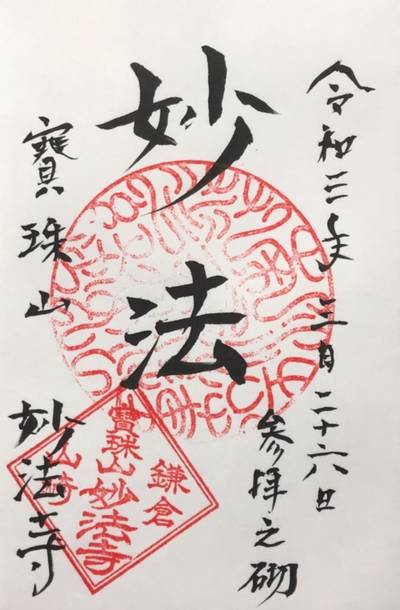 令和三年三月二十六日
参拝之砌
妙法
寳珠山
妙法寺
鎌倉
寳珠山妙法寺
山崎